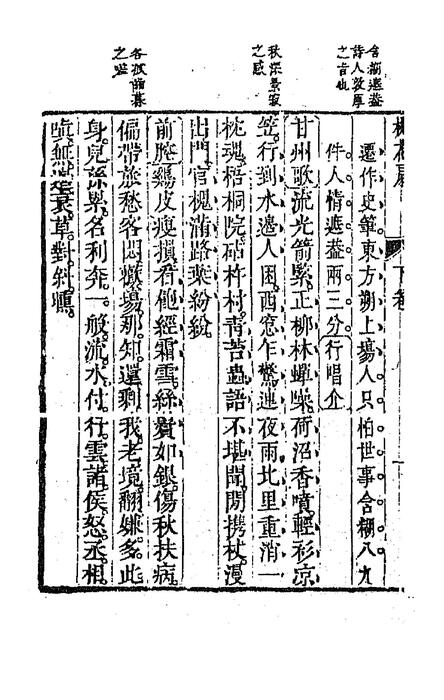 含糊遮蓋
詩人敦厚
之旨也
秋深景寂
之感
桃花扇 下卷
遷作史筆東方朔上場人只怕世事含糊八九
件人情遮蓋兩三分行唱介
甘州歌流光箭緊正柳林蟬噪荷沼香噴輕衫凉
笠行到水邊人困西窓乍驚連夜雨北里重消一
枕魂梧桐院砧杵村青苔蟲語不堪聞閒携杖漫
出門宮槐滿路葉紛紛
前腔鷄皮瘦損看飽經霜雪絲鬢如銀傷秋扶病
偏帶旅愁客悶歡場那知還剩我老境翻嫌多此
身兒孫累名利奔一般流水付行雲諸侯怒丞相
嗔無邊衰草對斜曛